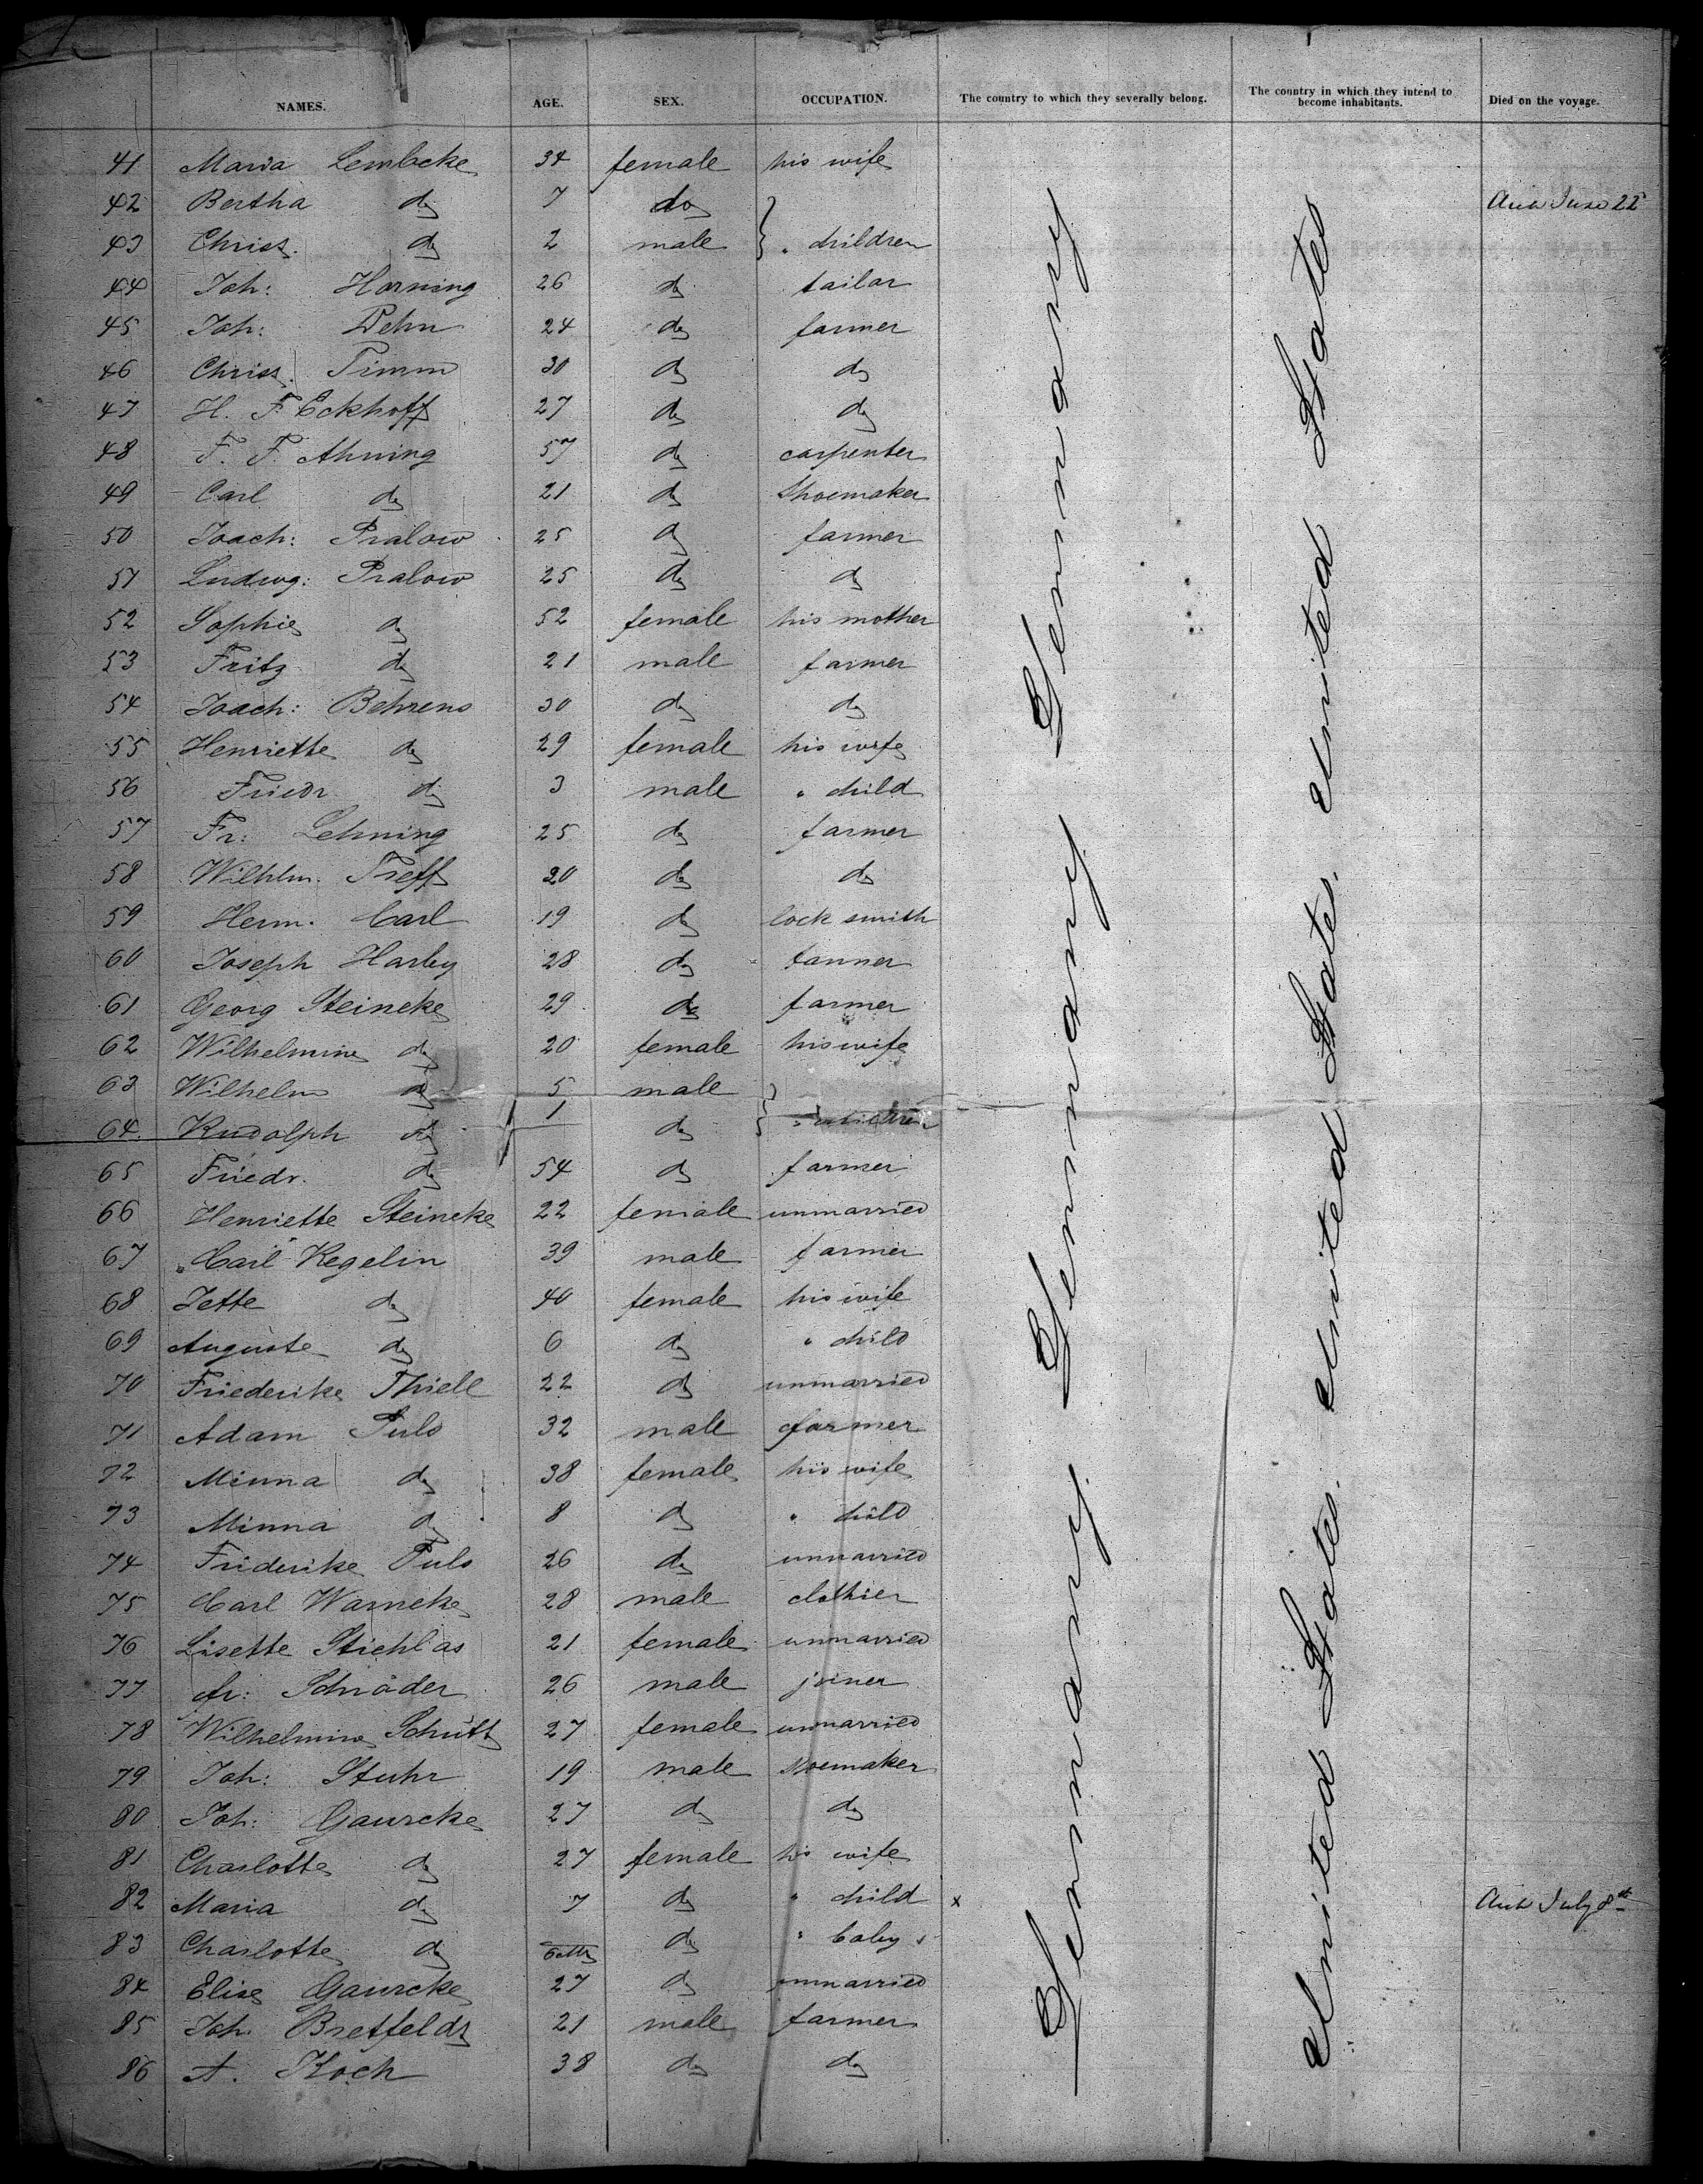 NAMES. AGE. SEX. OCCUPATION. The country to which they severally belong. The country in which they intend to become inhabitants. Died on the voyage.
41 Maria Lembcke 34 female his wife
42 Bertha do 7 do June 22
43 Christ. do 2 male } " children
44 Joh: Horning 26 do tailor
45 Joh: Dehn 24 do farmer
46 Christ. Timm 30 do do
47 H. F. Eckhoff 27 do do
48 F. F. Ahning 57 do carpenter
49 Carl do 21 do Shoemaker
50 Joach: Pralow 25 do farmer
51 Ludwg: Pralow 25 do do
52 Sophie do 52 female his mother
53 Fritz do 21 male farmer
54 Joach: Behrens 30 do do
55 Henriette do 29 female his wife
56 Friedr do 3 male " child
57 Fr: Lehning 25 do farmer
58 Wilhlm. Treff 20 do do
59 Herm. Carl 19 do lock smith
60 Joseph Harley 28 do tanner
61 Georg Steincke 29 do farmer
62 Wilhelmine do 20 female his wife
63 Wilhelm do 5 male }
64 Rudolph do 1 do } " children
65 Friedr. do 54 do farmer
66 Henriette Steincke 22 female unmarried
67 Carl Kegelin 39 male farmer
68 Jette do 40 female his wife
69 Auguste do 6 do " child
70 Friederike Thiell 22 do unmarried
71 Adam Puls 32 male farmer
72 Minna do 38 female his wife
73 Minna do 8 do " child
74 Friderike Puls 26 do unmarried
75 Carl Warneke 28 male clothier
76 Lisette Stiehlas 21 female unmarried
77 Fr: Schröder 26 male joiner
78 Wilhelmine Schütt 27 female unmarried
79 Joh: Stuhr 19 male Shoemaker
80 Joh: Gaurcke 27 do do
81 Charlotte do 27 female his wife
82 Maria do 7 do " child x July 8th
83 Charlotte do 6 Mth do " baby
84 Elise Gaurcke 27 do unmarried
85 Joh. Bretfeldt 21 male farmer
86 A. Koch 38 do do
Germany Germany Germany
United States. United States. United States